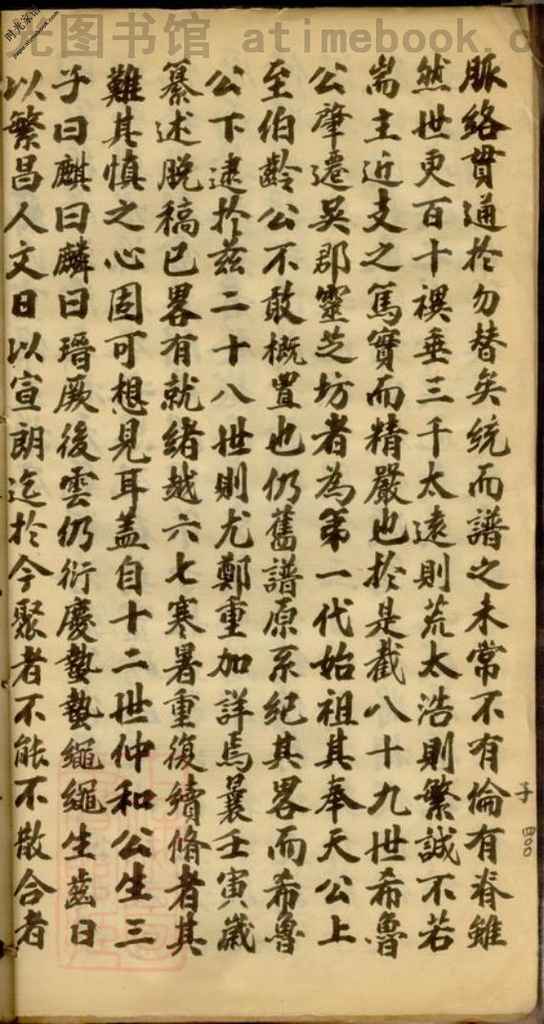 光图书馆 atimebook.c
脈絡貫通於勿替矣統而譜之未常不有倫有脊雖
然世更百十禩垂三千太遠則荒太浩則繁誠不若
耑主近支之篤實而精嚴也於是截八十九世希魯
公肇遷吳郡靈芝坊者為第一代始祖其奉天公上
至伯齡公不敢概置也仍舊譜原系紀其畧而希魯
公下逮於茲二十八世則尤鄭重加詳焉曩壬寅歲
纂述脫稿已畧有就緒越六七寒暑重復續脩者其
難其慎之心固可想見耳蓋自十二世仲和公生三
子曰麒曰麟曰瑨厥後雲仍衍慶蟄蟄繩繩生齒日
以繁昌人文日以宣朗迄於今聚者不能不散合者
四〇〇